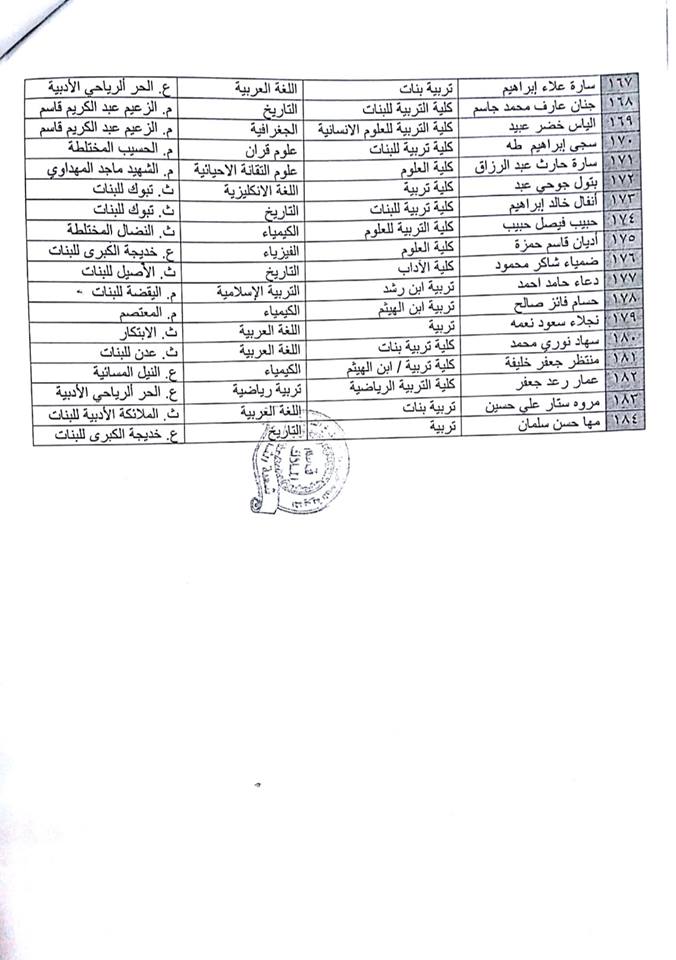 ١٦٧ سارة علاء إبراهيم تربية بنات اللغة العربية ع. الحر ألرياحي الأدبية
١٦٨ جنان عارف محمد جاسم كلية التربية للبنات التاريخ م. الزعيم عبد الكريم قاسم
١٦٩ الياس خضر عبيد كلية التربية للعلوم الانسانية الجغرافية م. الزعيم عبد الكريم قاسم
١٧٠ سجى إبراهيم طه كلية تربية للبنات علوم قران م. الحسيب المختلطة
١٧١ سارة حارث عبد الرزاق كلية العلوم علوم التقانة الاحيائية م. الشهيد ماجد المهداوي
١٧٢ بتول جوحي عبد كلية تربية اللغة الانكليزية ث. تبوك للبنات
١٧٣ أنفال خالد إبراهيم كلية تربية للبنات التاريخ ث. تبوك للبنات
١٧٤ حبيب فيصل حبيب كلية التربية للعلوم الكيمياء ث. النضال المختلطة
١٧٥ أديان قاسم حمزة كلية العلوم الفيزياء ع. خديجة الكبرى للبنات
١٧٦ ضمياء شاكر محمود كلية الآداب التاريخ ث. الأصيل للبنات
١٧٧ دعاء حامد احمد تربية ابن رشد التربية الإسلامية م. اليقضة للبنات
١٧٨ حسام فائز صالح تربية ابن الهيثم الكيمياء م. المعتصم
١٧٩ نجلاء سعود نعمه تربية اللغة العربية ث. الابتكار
١٨٠ سهاد نوري محمد كلية تربية بنات اللغة العربية ث. عدن للبنات
١٨١ منتظر جعفر خليفة كلية تربية / ابن الهيثم الكيمياء ع. النيل المسائية
١٨٢ عمار رعد جعفر كلية التربية الرياضية تربية رياضية ع. الحر ألرياحي الأدبية
١٨٣ مروه ستار علي حسين تربية بنات اللغة العربية ث. الملائكة الأدبية للبنات
١٨٤ مها حسن سلمان تربية التاريخ ع. خديجة الكبرى للبنات